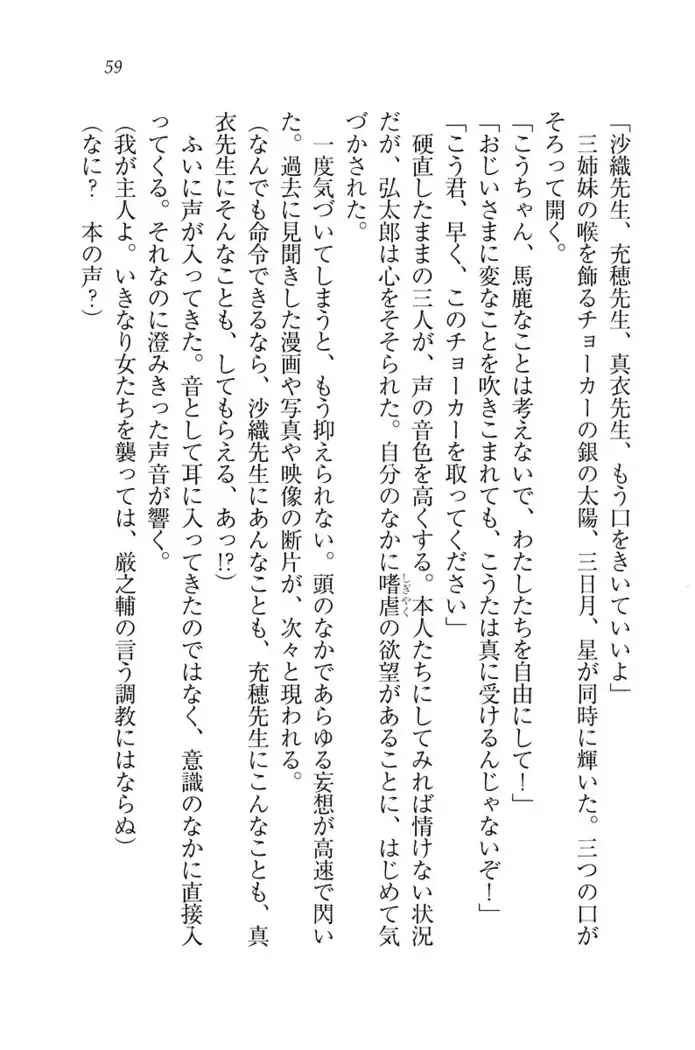 59
「沙織先生、充穂先生、真衣先生、もう口をきいていいよ」
　三姉妹の喉を飾るチョーカーの銀の太陽、三日月、星が同時に輝いた。三つの口が
そろって開く。
「こうちゃん、馬鹿なことは考えないで、わたしたちを自由にして！」
「おじいさまに変なことを吹きこまれても、こうたは真に受けるんじゃないぞ！」
「こう君、早く、このチョーカーを取ってください」
　硬直したままの三人が、声の音色を高くする。本人たちにしてみれば情けない状況
だが、弘太郎は心をそそられた。自分のなかに嗜虐の欲望があることに、はじめて気
しぎやく
づかされた。
　一度気づいてしまうと、もう抑えられない。頭のなかであらゆる妄想が高速で閃い
た。過去に見聞きした漫画や写真や映像の断片が、次々と現われる。
（なんでも命令できるなら、沙織先生にあんなことも、充穂先生にこんなことも、真
衣先生にそんなことも、してもらえる、あっ!?）
　ふいに声が入ってきた。音として耳に入ってきたのではなく、意識のなかに直接入
ってくる。それなのに澄みきった声音が響く。
（我が主人よ。いきなり女たちを襲っては、厳之輔の言う調教にはならぬ）
（なに？　本の声？）